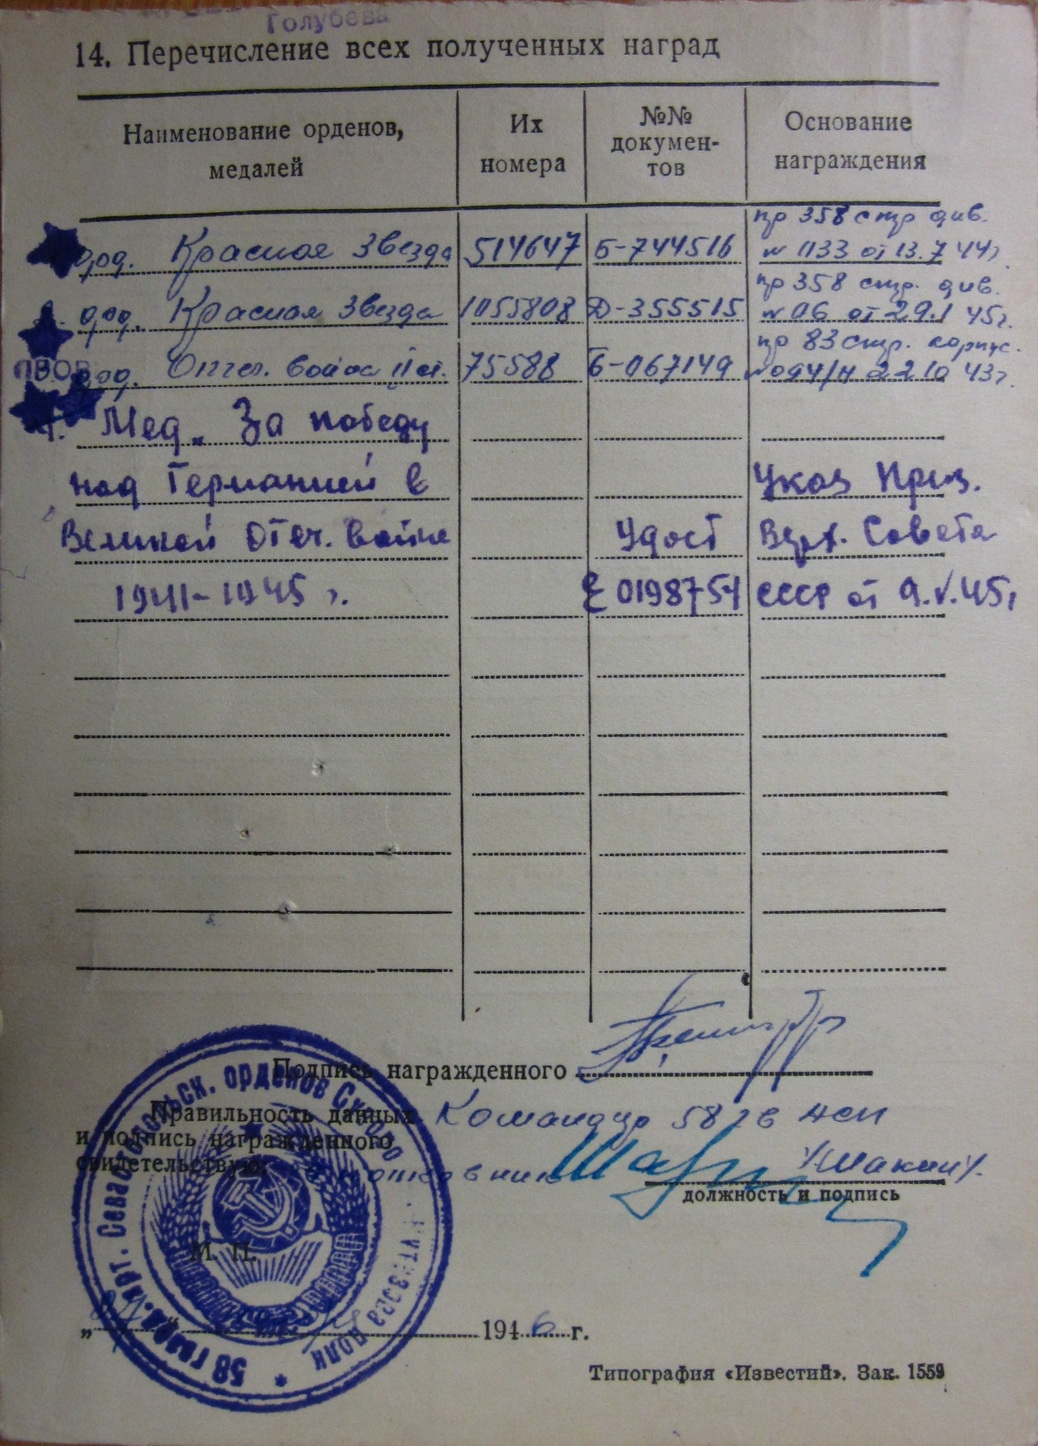 Голубева
14. Перечисление всех полученных наград
Наименование орденов, медалей
Их номера
№№ докумен- тов
Основание награждения
орд. Красная Звезда 514647 Б-744516 пр 358 стр див. № 1133 от 13.7 44г
орд. Красная Звезда 1055808 Д-355515 пр 358 стр. див. № 06 от 29.1 45г.
ПВОВ
орд. Отеч. войны II ст. 75588 Б-067149 пр 83 стр. корпус.
43г.
4. Мед. „За победу
над Германией в Указ През.
Великой Отеч. войне Удост Верх. Совета
1941-1945 г. Е 0198754 СССР от 9.V.45г
Подпись награжденного
Правильность данных Командир 58 гв
и подпись награжденного
свидетельствую:
должность и подпись
М. П.
58 Гвард. Арт. Севастопольск. орденов
Полк
„ “ 1946 г.
Типография «Известий». Зак. 1559